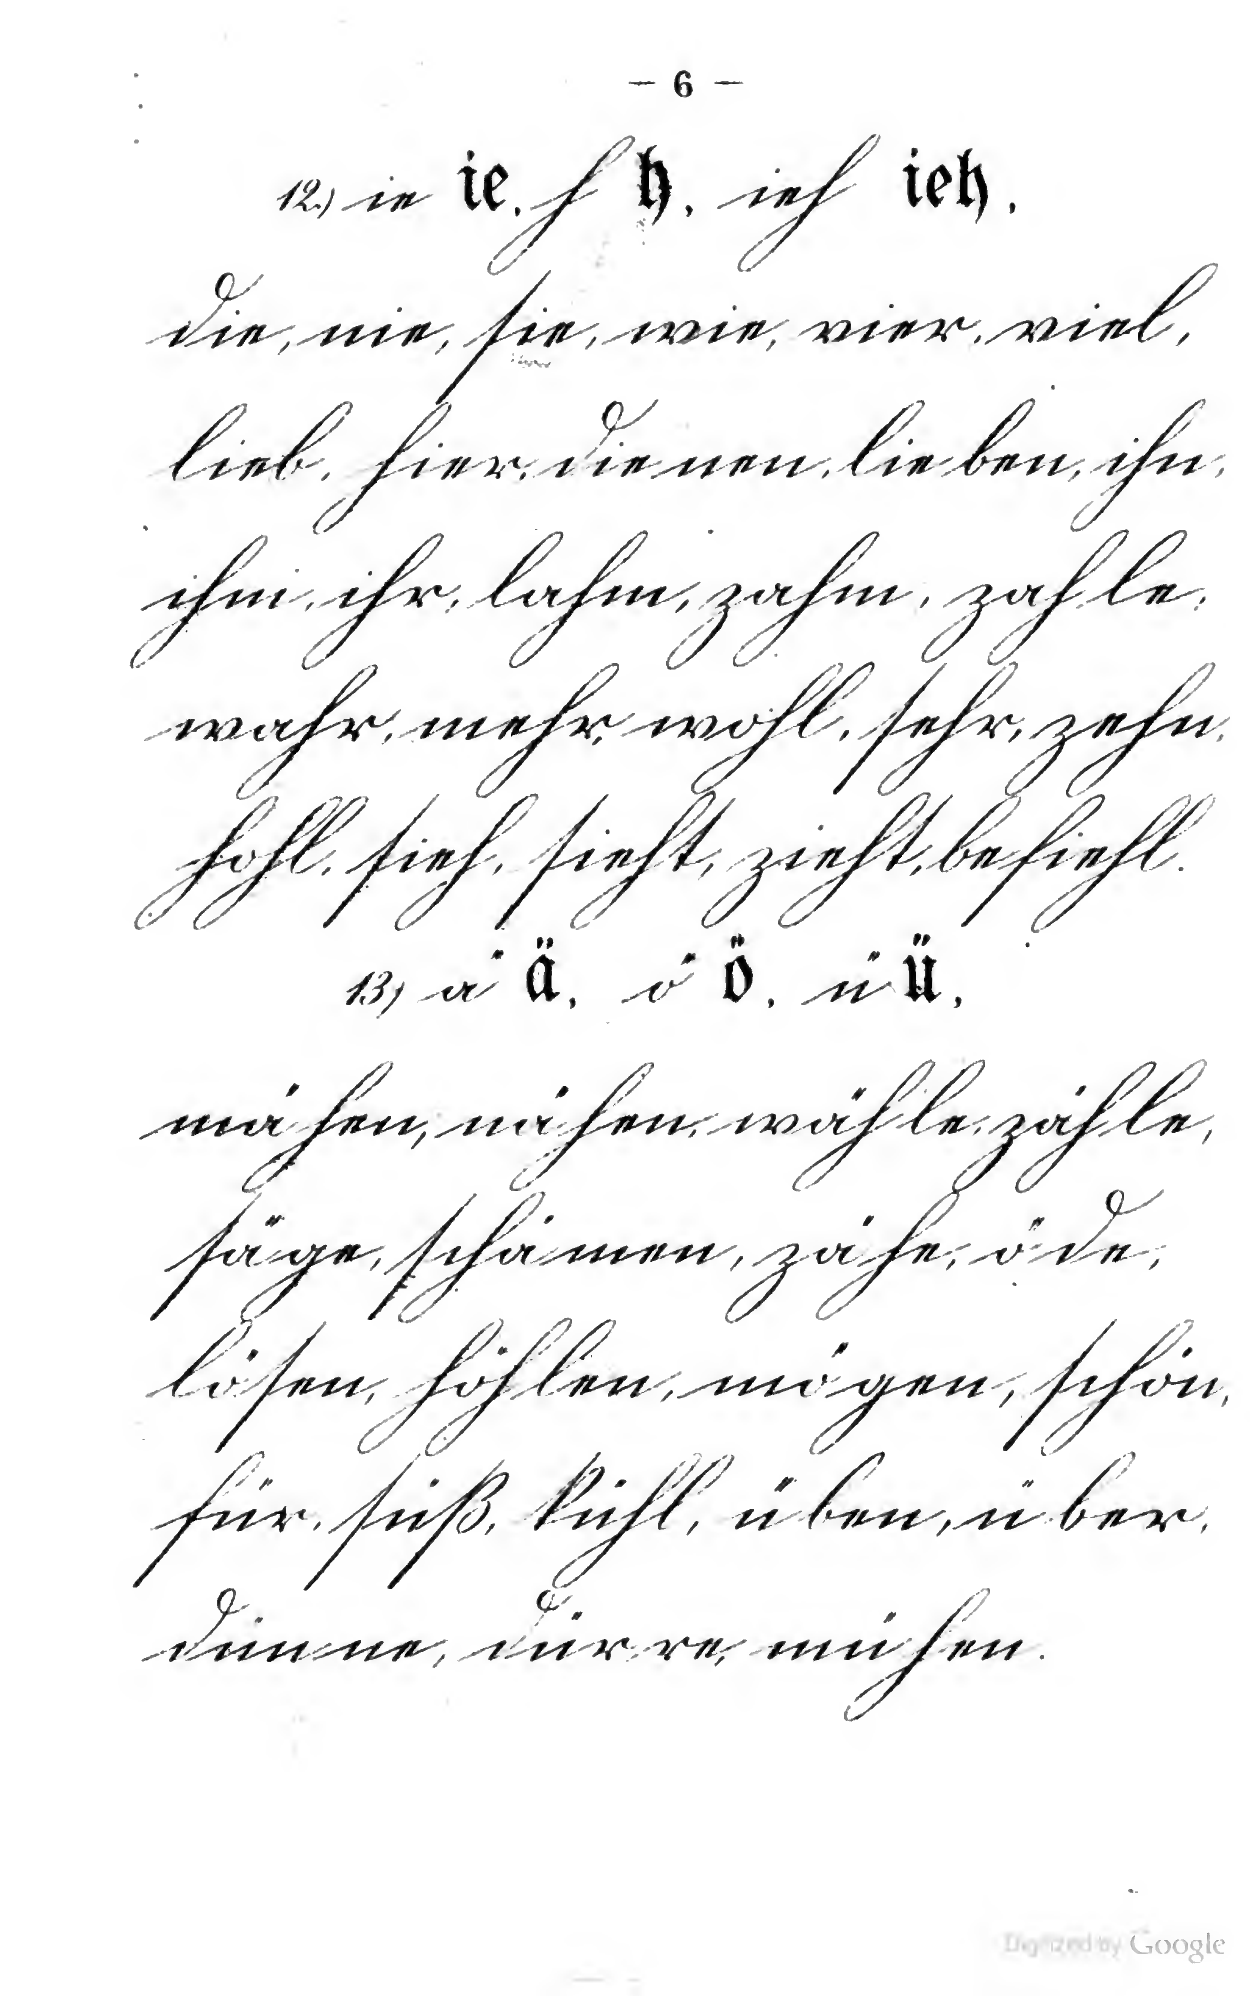 — 6 —
12.) ie ie, h h, ieh ieh,
die, nie, sie, wie, vier, viel,
lieb, hier, die nen, lie ben, ihn,
ihm, ihr, lahm, zahm, zah le,
wahr, mehr, wohl, sehr, zehn,
hohl, sieh, sieht, zieht, befiehl.
13) ä ä, ö ö, ü ü,
mä hen, nä hen, wäh le, zäh le,
säge, schä men, zä he, ö de,
lö sen, höh len, mö gen, schön,
für, süß, kühl, ü ben, ü ber,
dün ne, dür re, mü hen.
Digitized by Google